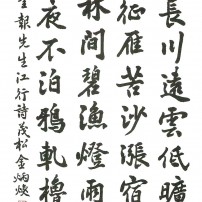 長川遠雲低曠
征雁苦沙漲宿
林間碧漁燈雨
夜不泊鴉軋櫓
報先生江行詩茂松金炳煥